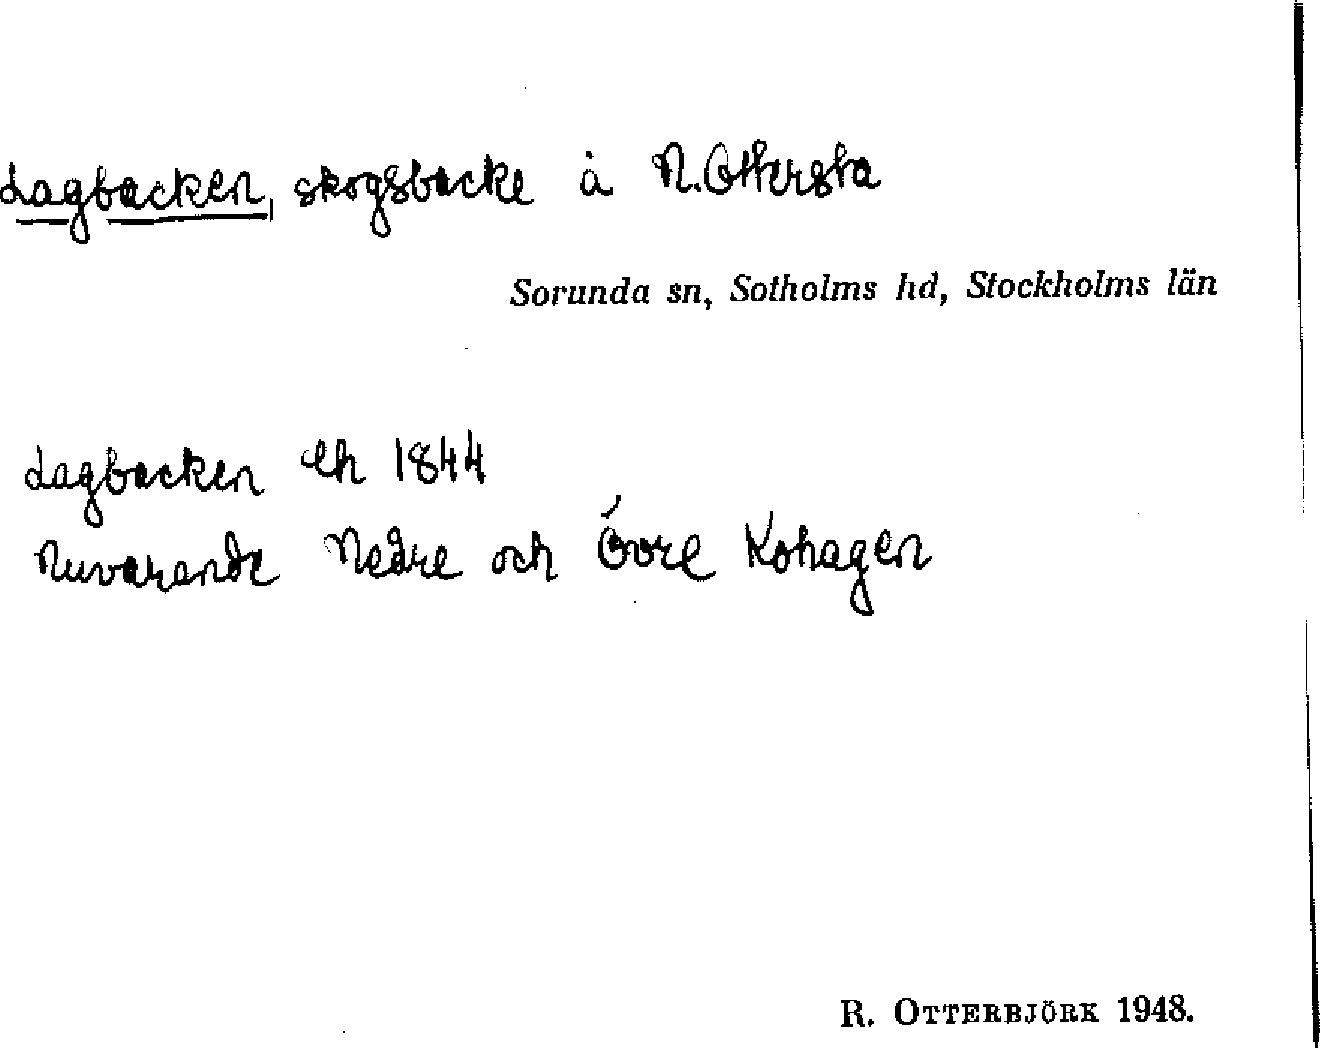 Lagbacken, skogsbacke å N. Ottersta
Sorunda sn, Sotholms hd, Stockholms län
Lagbacken eh 1844
Nuvarande Nedre och Övre Kohagen
R. OTTERBJÖRK 1948.